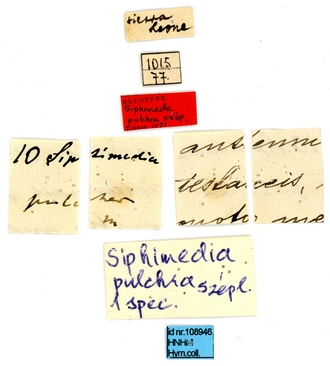 sierra
Leone
1015
77.
HOLOTYPE
Siphimedia
pulchra szépl
10 Siphimedia
pulcher
m
antenn
testaceis,
moto me
Siphimedia
pulchra szépl.
1 spec.
Id nr. 108946
HNHM
Hym.coll.